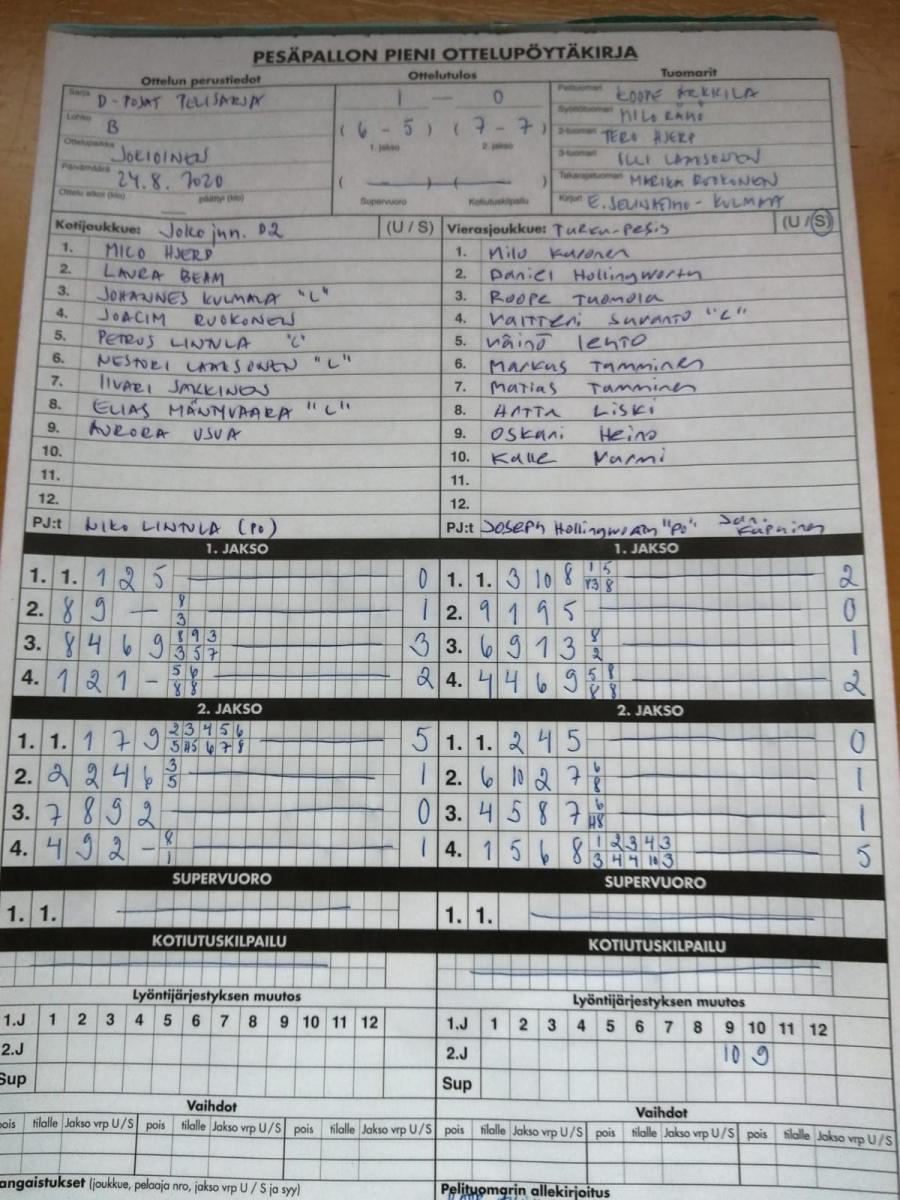 PESÄPALLON PIENI OTTELUPÖYTÄKIRJA
Ottelun perustiedot Ottelutulos Tuomarit
Sarja D-POJAT PELISARJA
Lohko B
Ottelupaikka JOKIOINEN
Päivämäärä 24.8.2020
Ottelu alkoi (klo) — päättyi (klo)
1 — 0
(6 - 5) (7 - 7)
1. jakso 2. jakso
( — ) ( — )
Supervuoro Kotiutuskilpailu
Pelituomari ROOPE ARKKILA
Syöttötuomari MILO RÄMÖ
2-tuomari TERO HJERP
3-tuomari ILLI LAAKSONEN
Takarajatuomari MARIKA RUOKONEN
Kirjuri E. SEUNA - KULMALA
Kotijoukkue: Joko jun. D2 (U / S) Vierasjoukkue: Turku-Pesis (U / S)
1. MILO HJERP
2. LAURA BEAM
3. JOHANNES KULMALA "L"
4. JOACIM RUOKONEN
5. PETRUS LINTULA "C"
6. NESTORI LAAKSONEN "L"
7. IIVARI SAKKINEN
8. ELIAS MÄNTYVAARA "L"
9. AURORA USVA
10.
11.
12.
PJ:t NIKO LINTULA (PO)
1. Milo Kuronen
2. Daniel Hollingworth
3. Roope Tuomola
4. Valtteri Suvanto "L"
5. Väinö Lehto
6. Markus Tamminen
7. Matias Tamminen
8. Artta Liski
9. Oskari Heino
10. Kalle Nurmi
11.
12.
PJ:t Joseph Hollingworth "PO"
1. JAKSO 1. JAKSO
1. 1. 1 2 5 — 0
2. 8 9 — 8 3 — 1
3. 8 4 6 9 8 9 3 3 5 7 — 3
4. 1 2 1 - 5 6 8 8 — 2
1. 1. 3 10 8 1 5 H3 8 — 2
2. 9 1 9 5 — 0
3. 6 9 1 3 8 2 — 1
4. 4 4 6 9 5 8 8 8 — 2
2. JAKSO 2. JAKSO
1. 1. 1 7 9 2 3 4 5 6 5 H5 6 7 8 — 5
2. 2 2 4 6 3 5 — 1
3. 7 8 9 2 — 0
4. 4 9 2 - 8 1 — 1
1. 1. 2 4 5 — 0
2. 6 10 2 7 6 8 — 1
3. 4 5 8 7 6 H8 — 1
4. 1 5 6 8 1 2 3 4 3 3 4 4 10 3 — 5
SUPERVUORO SUPERVUORO
1. 1. — 1. 1. —
KOTIUTUSKILPAILU KOTIUTUSKILPAILU
Lyöntijärjestyksen muutos Lyöntijärjestyksen muutos
1.J 1 2 3 4 5 6 7 8 9 10 11 12
2.J
Sup
1.J 1 2 3 4 5 6 7 8 9 10 11 12
2.J 10 9
Sup
Vaihdot Vaihdot
pois tilalle Jakso vrp U / S pois tilalle Jakso vrp U / S
pois tilalle Jakso vrp U / S pois tilalle Jakso vrp U / S
angaistukset (joukkue, pelaaja nro, jakso vrp U / S ja syy) Pelituomarin allekirjoitus